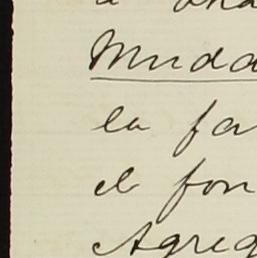 Muda
la fa
el fon
Agreg